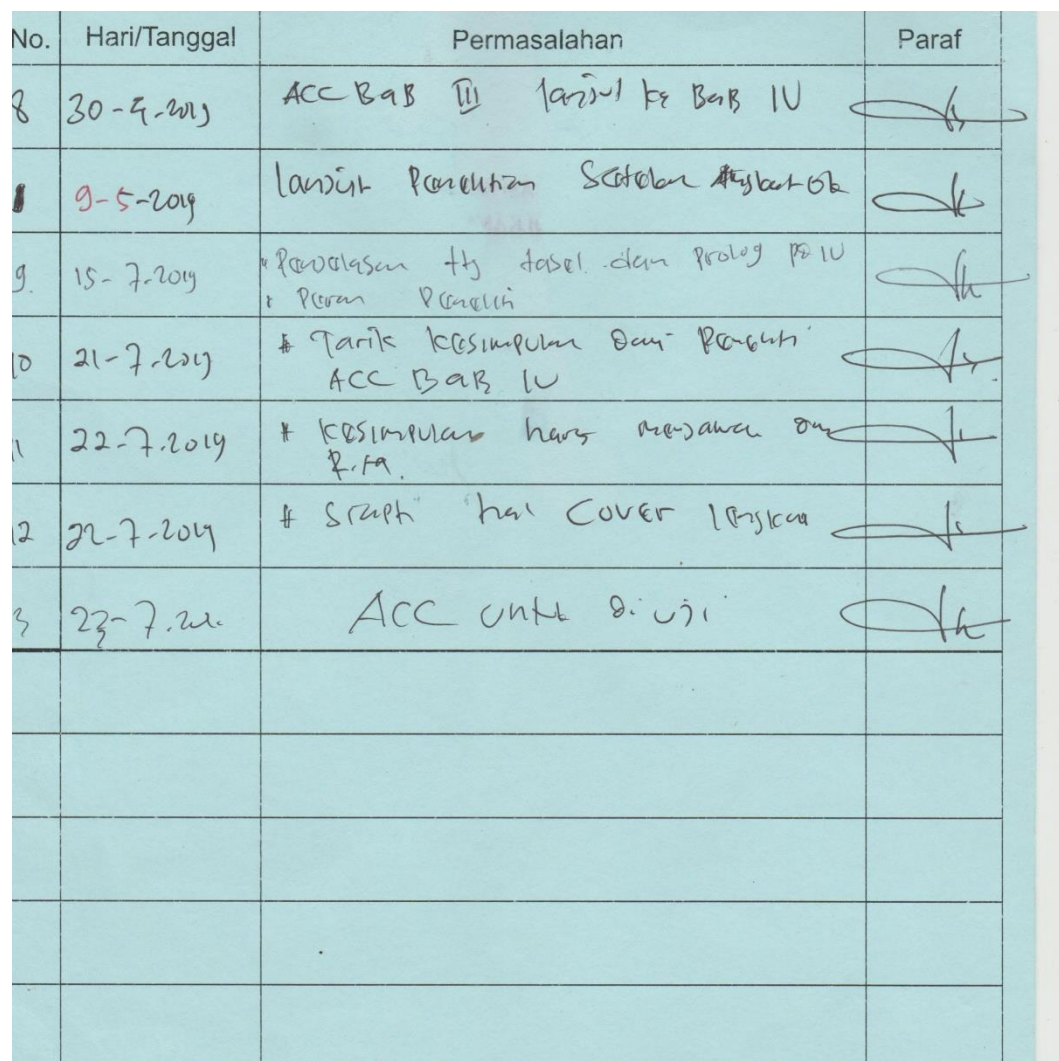 No. Hari/Tanggal Permasalahan Paraf
8 30-4-2019 ACC BaB III lanjut ke BaB IV
9-5-2019 lanjut Penelitian Setelah
9. 15-7-2019 * Penjelasan ttg tabel dan Prolog
* Peran Peneliti
10 21-7-2019 # Tarik kesimpulan dari
ACC BaB IV
11 22-7-2019 # kesimpulan harus menjawab
12 22-7-2019 # hal Cover lengkap
3 23-7. ACC untuk diuji